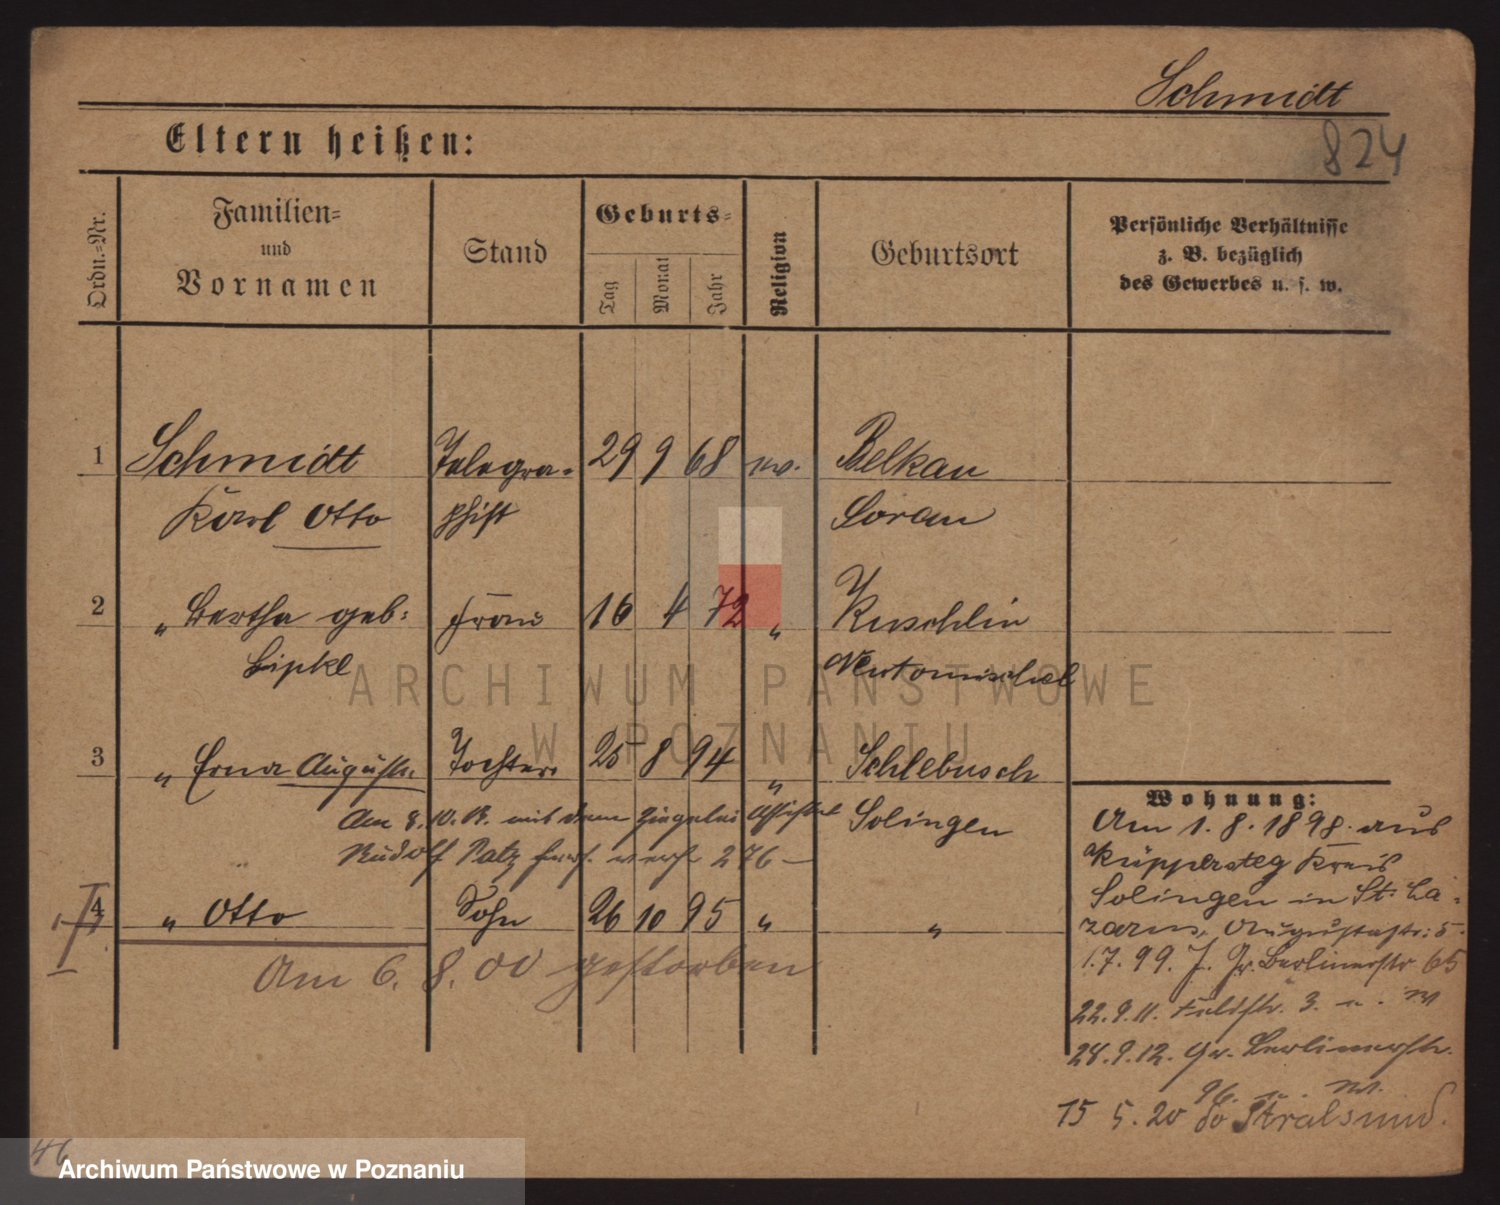 Schmidt
824
Eltern heißen:
Ordn.-Nr.
Familien-
und
Vornamen
Stand
Geburts-
Tag
Monat
Jahr
Religion
Geburtsort
Persönliche Verhältnisse
z. B. bezüglich
des Gewerbes u. s. w.
1 Schmidt Telegra- 29 9 68 ev. Belkau
Karl Otto phist Sorau
2 " Bertha geb: Frau 16 4 72 " Kuschlin
Lipke Neutomischel
3 " Erna Auguste Tochter 25 8 94 " Schlebusch
Am 8. mit dem Rudolf 276 —
Solingen
4 " Otto Sohn 26 10 95 " "
Am 6. 8. 00 gestorben
Wohnung:
Am 1. 8. 1898. aus
Küppersteg Kreis
Solingen in St. La-
zarus, Augustastr: 5.
1. 7. 99. J. Gr. Berlinerstr 65
22. 9. 11. Feldstr. 3.
28. 9. 12. Gr. Berlinerstr.
96.
15 5. 20 Stralsund.
46
ARCHIWUM PAŃSTWOWE
W POZNANIU
Archiwum Państwowe w Poznaniu